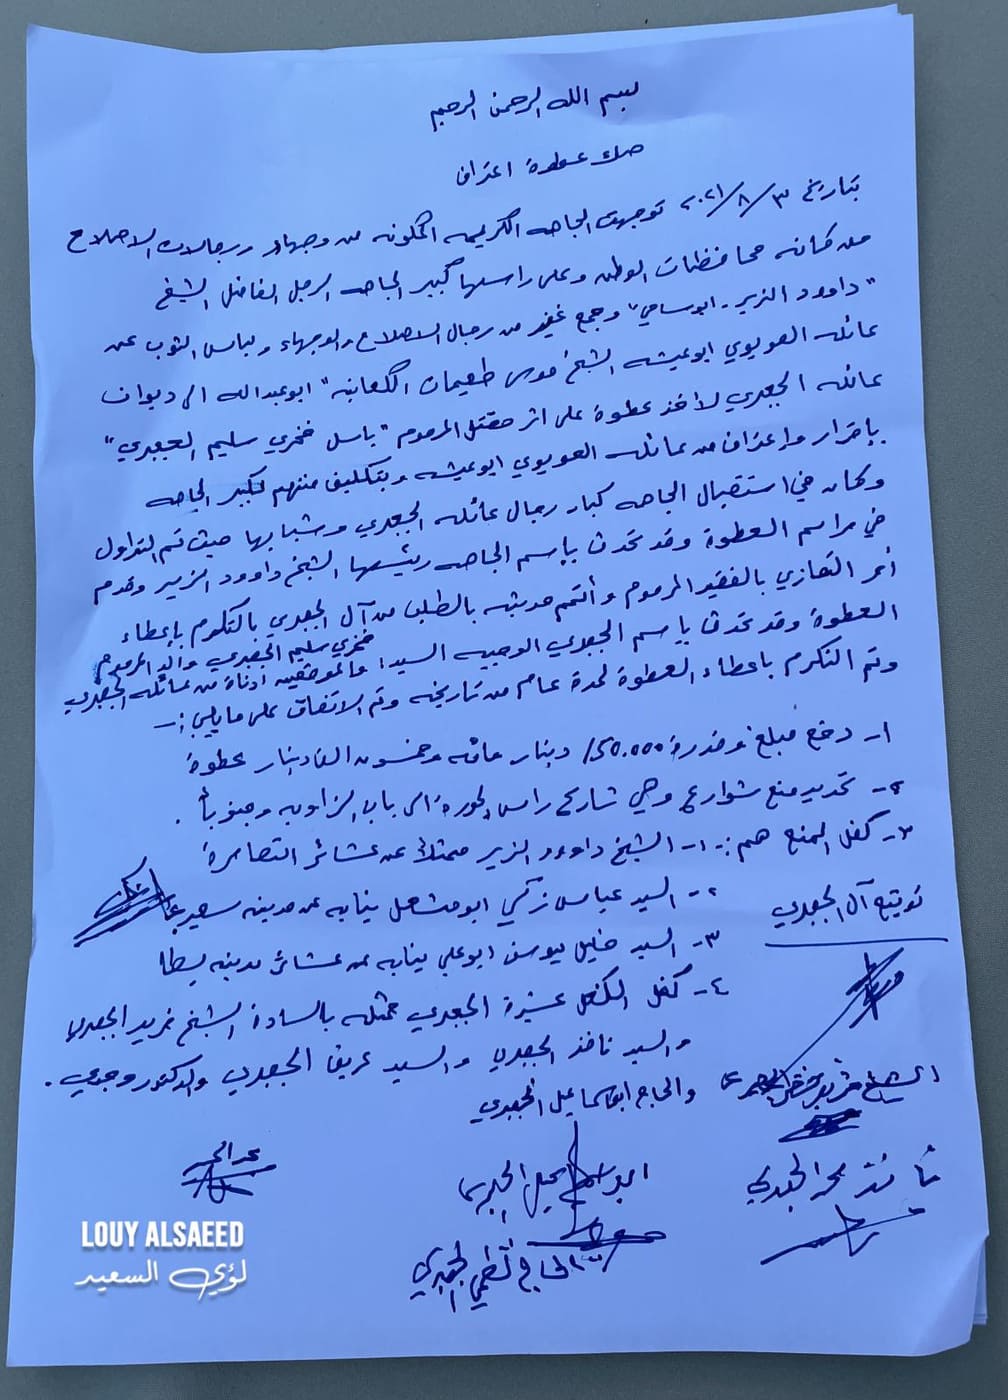 بسم الله الرحمن الرحيم
صك عطوة اعتراف
بتاريخ ٢٠٢١/٨/٣ توجهت الجاهه الكريمه المكونه من وجهاء ورجالات الاصلاح
من كافة محافظات الوطن وعلى راسها كبير الجاهه الرجل الفاضل الشيخ
"داوود الزير - ابو سامي" وجمع غفير من رجال الاصلاح والوجهاء ولباس الثوب عن
عائلة العويوي ابو عيشه الشيخ موسى طعيمات الكعابنه "ابو عبدالله الى ديوان
عائلة الجعبري لأخذ عطوة على اثر مقتل المرحوم "باسل فخري سليم الجعبري"
بإقرار وإعتراف من عائلة العويوي ابو عيشه وبتكليف منهم لكبير الجاهه
وكان في استقبال الجاهه كبار رجال عائلة الجعبري وشبابها حيث تم التداول
في مراسم العطوة وقد تحدث بإسم الجاهه رئيسها الشيخ داوود الزير وقدم
أحر التعازي بالفقيد المرحوم وأتم حديثه بالطلب من آل الجعبري بالتكرم بإعطاء
العطوة وقد تحدث بإسم الجعبري الوجيه السيد فخري سليم الجعبري والد المرحوم
والموقعين ادناه من عائلة الجعبري
وتم التكرم باعطاء العطوة لمدة عام من تاريخه وتم الاتفاق على ما يلي :-
١- دفع مبلغ وقدرة 150.000/ دينار مائه وخمسون الف دينار عطوة
٢- تحديد منع شوارع وهي شارع راس الجورة الى باب الزاويه وجنوباً .
٣- كفل المنع هم :- ١- الشيخ داوود الزير ممثلاً عن عشائر التعامرة
٢- السيد عباس زكي ابو مشعل نيابه عن مدينه سعير
٣- السيد خليل يوسف ابو علي نيابه عن عشائر مدينه يطا
توقيع آل الجعبري
٤- كفل الكفل عشيرة الجعبري ممثله بالسادة الشيخ فريد الجعبري
والسيد نافذ الجعبري والسيد عريف الجعبري والدكتور وجدي .
والحاج ابو اسماعيل الجعبري
الشيخ فريد خضر الجعبري
نافذ الجعبري
ابو اسماعيل الجعبري
الحاج الجعبري
LOUY ALSAEED
لؤي السعيد